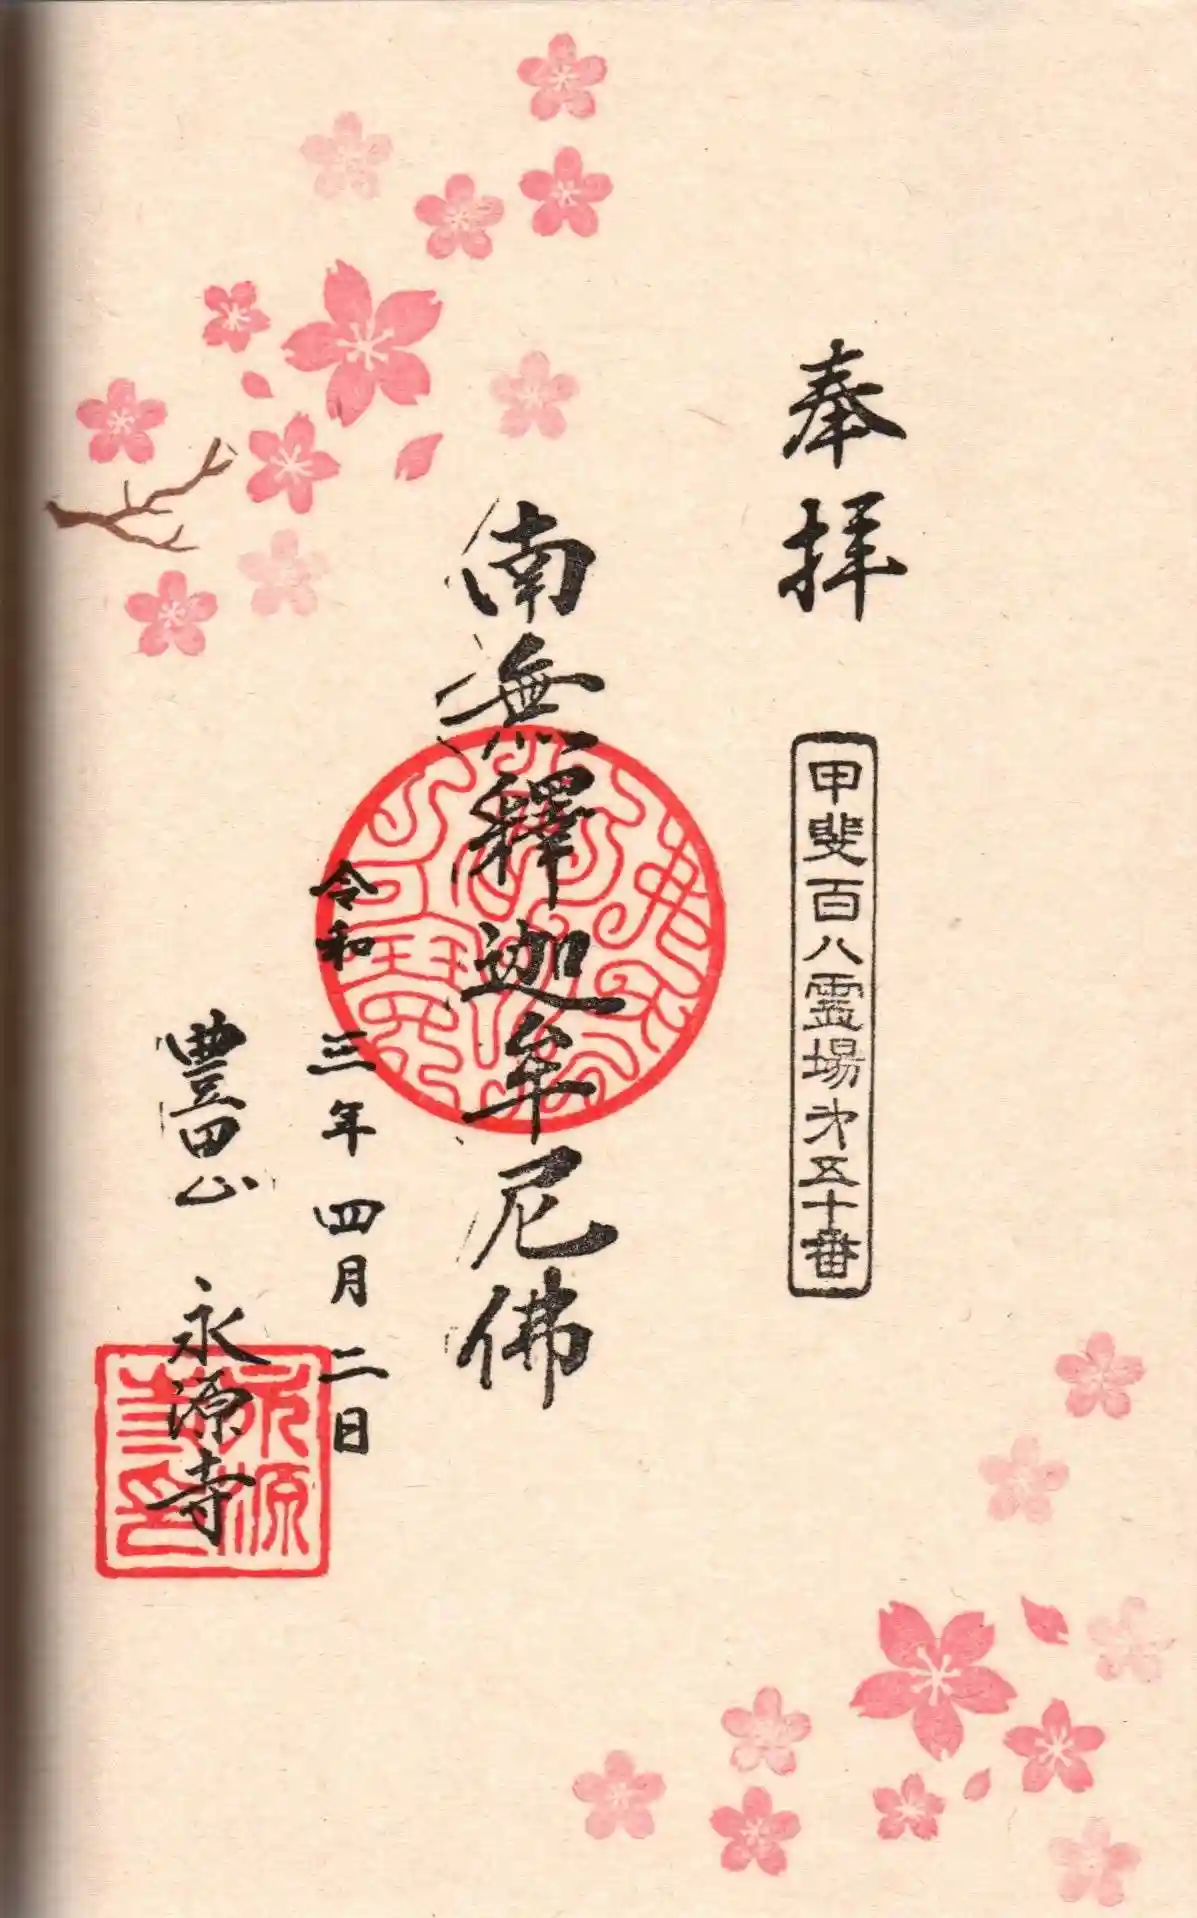 奉拝
甲斐百八霊場第五十番
南無釋迦牟尼佛
令和三年四月二日
豊田山 永源寺